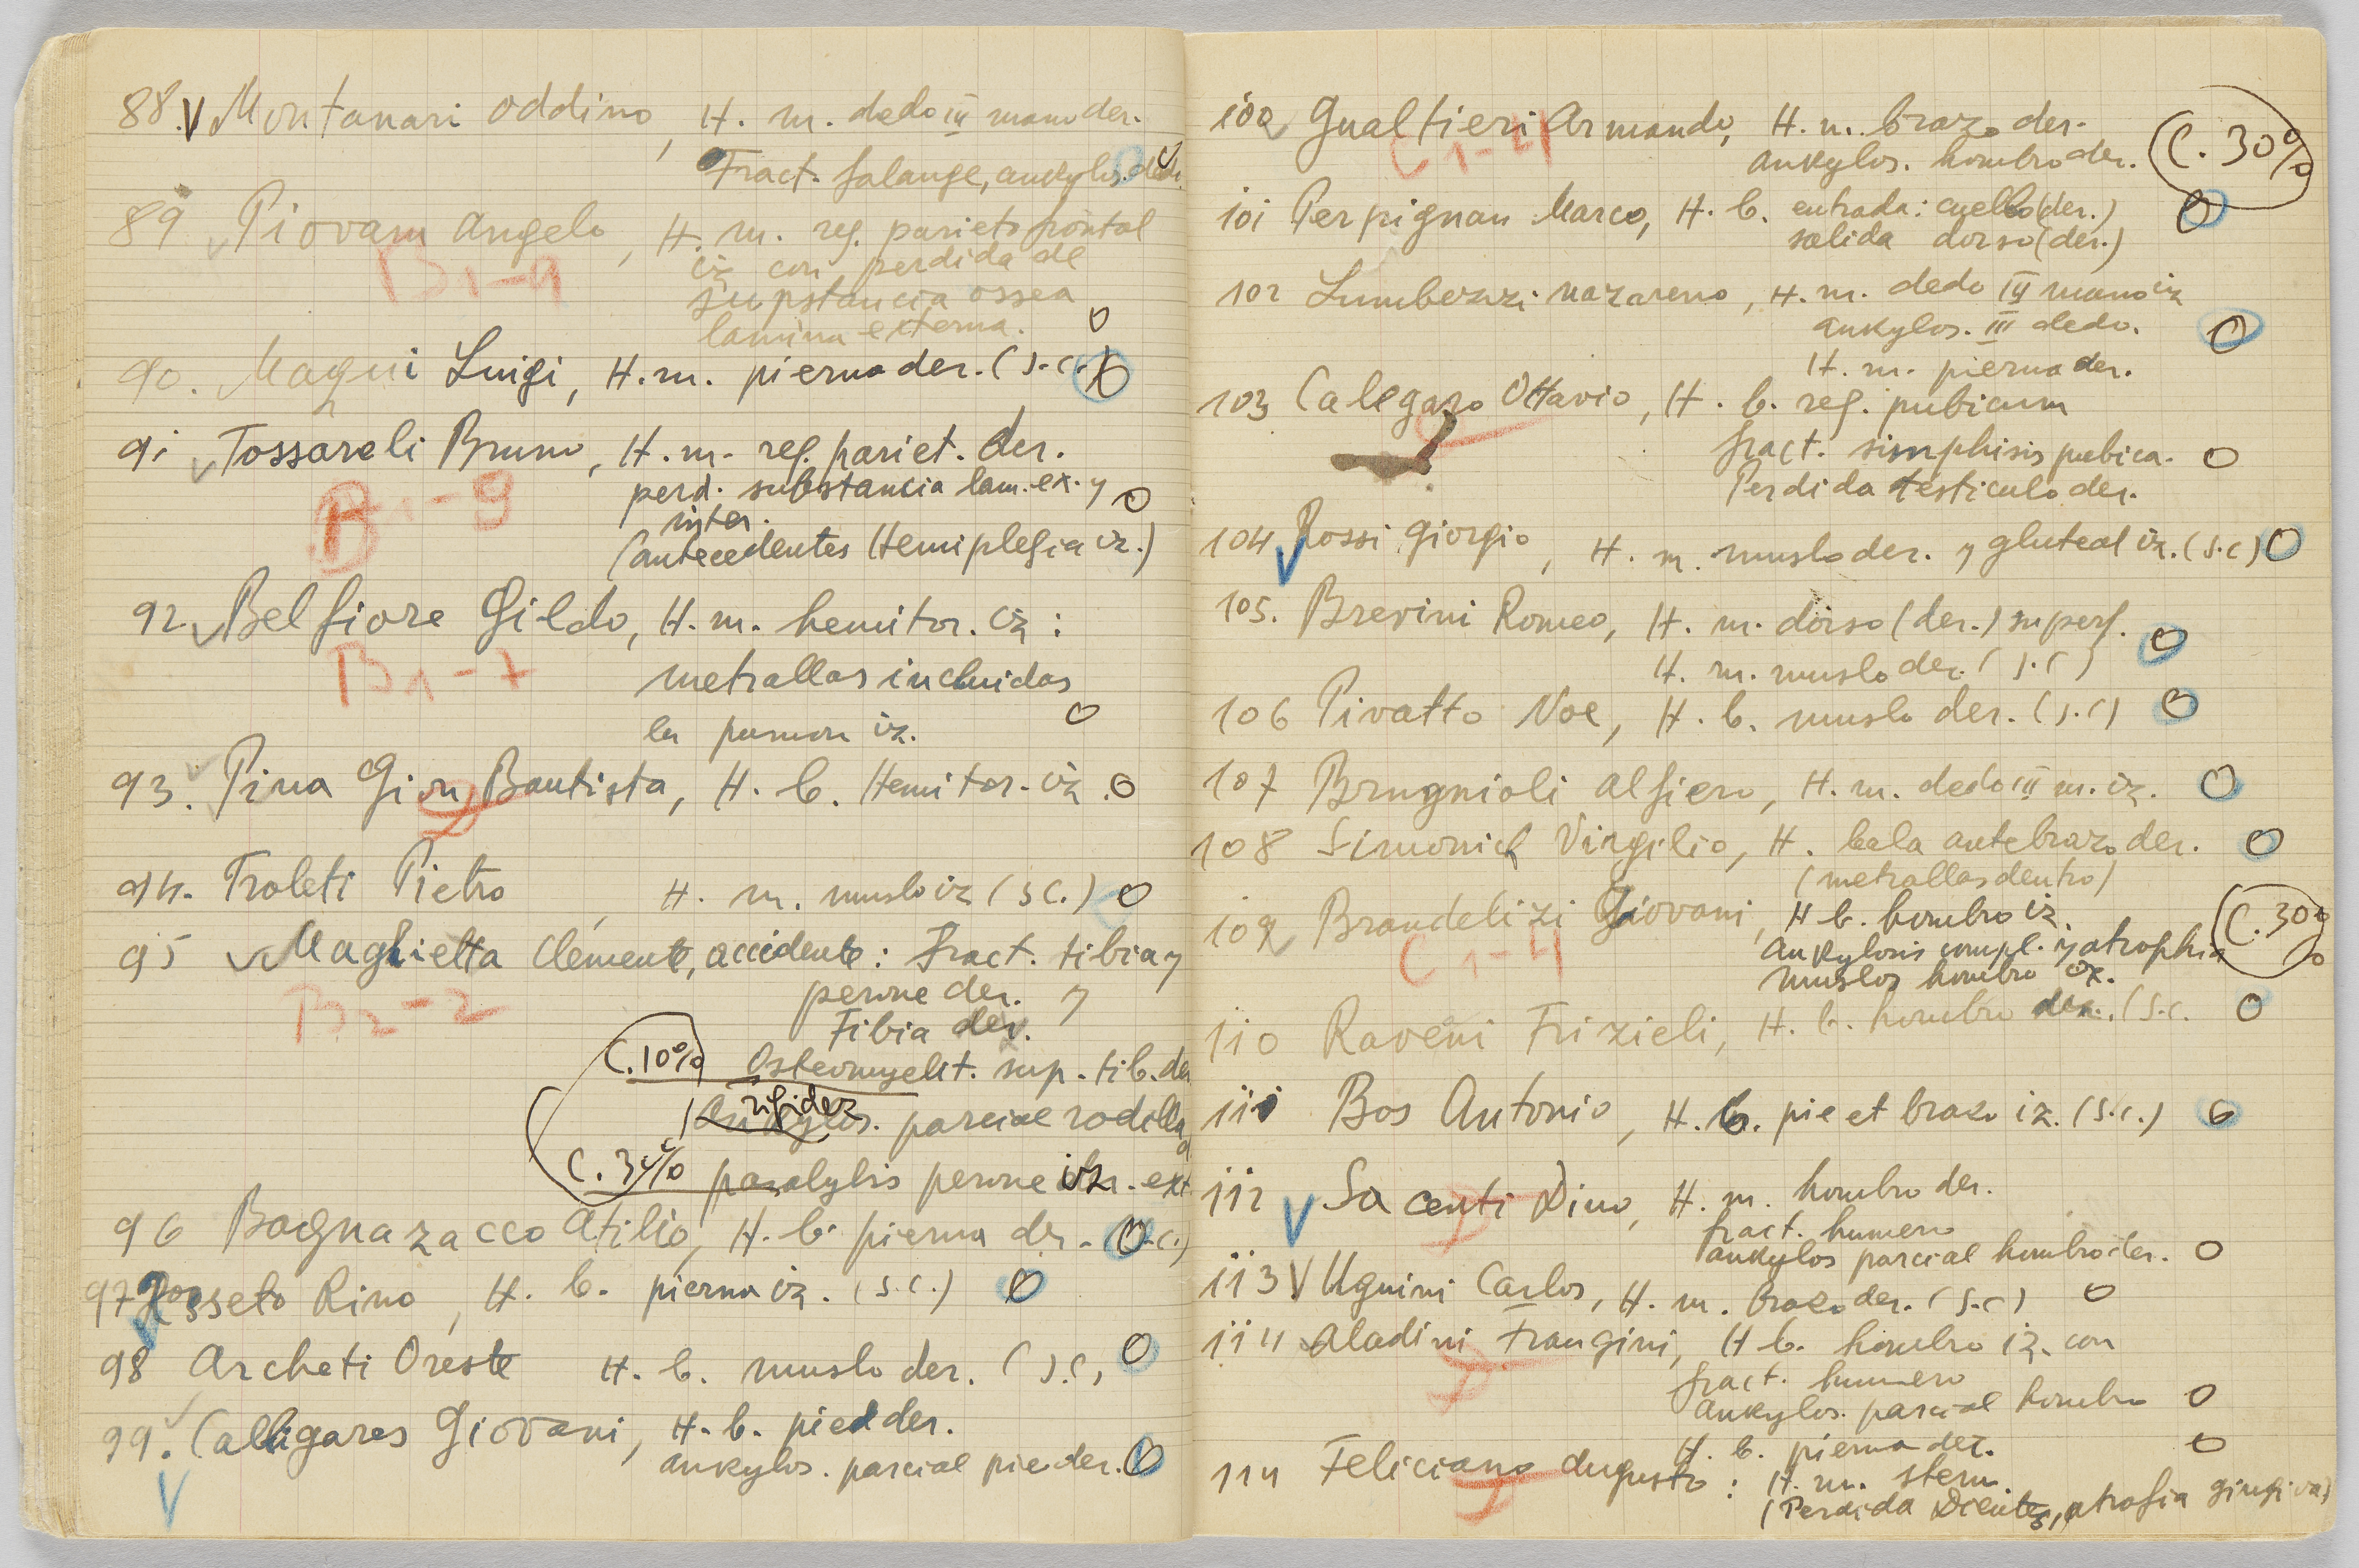 88. V Montanari Oddino, H. m. dedo III mano der.
Fract. falange, ankylos. dedo
89 Piovam Angelo, H. m. reg. parieto frontal
B1-9
iz con perdida de
supstancia ossea
lamina externa. 0
90. Magni Luigi, H. m. pierna der. (s.c.) 0
91 Tossareli Bruno, H. m. reg. pariet. der.
B1-9
perd. substancia lam. ex. y 0
inter.
(antecedentes Hemiplegia iz.)
92 Belfiore Gildo, H. m. hemitor. iz:
B1-7
metrallas incluidas
en pumon iz. 0
93. Pina Gion Bautista, H. b. Hemitor. iz. 0
94. Troleti Pietro, H. m. muslo iz (s.c.) 0
95 Maglietta Clemente, accidente: Fract. tibia y
B2-2
perone der. y
Tibia der.
C.10% Osteomyelit. sup. tib. der
rigidez
Ankylos. parcial rodilla
C. 30% paralylis perone iz. ext
96 Bagnazacco Atilio, H. b. pierna der. (s.c.) 0
97 Rosseto Rino, H. b. pierna iz. (s.c.) 0
98 Archeti Oreste H. b. muslo der. (s.c.) 0
99. Calligares Giovani, H. b. pie der.
ankylos. parcial pie der. 0
100 Gualtieri Armando, H. m. brazo der.
C1-4
ankylos. hombro der. C. 30%
101 Perpignan Marco, H. b. entrada: cuello (der.) 0
salida dorso (der.)
102 Lumbezzi Nazareno, H. m. dedo III mano iz
ankylos. III dedo. 0
H. m. pierna der.
103 Calegaro Ottavio, H. b. reg. pubicum
fract. simphisis pubica. 0
Perdida testiculo der.
104 Rossi Giorgio, H. m. muslo der. y gluteal iz. (s.c) 0
105. Brevini Romeo, H. m. dorso (der.) superf.
H. m. muslo der. (s.c) 0
106 Pivatto Noe, H. b. muslo der. (s.c) 0
107 Brugnioli Alfiero, H. m. dedo III m. iz. 0
108 Simonich Virgilio, H. bala antebrazo der. 0
(metrallas dentro)
109 Brandelizi Giovani, H b. hombro iz
C1-4
ankylosis compl. y atrophia C. 30%
muslos hombro iz.
110 Raveni Frizieli, H. b. hombro der. (s.c. 0
111 Bos Antonio, H. b. pie et brazo iz. (s.c.) 0
112 V Sacenti Dino, H. m. hombro der.
fract. humero
ankylos parcial hombro der. 0
113 V Ugnini Carlos, H. m. brazo der. (s.c) 0
114 Aladini Frangini, H b. hombro iz. con
fract. humero
ankylos. parcial hombro 0
H. b. pierna der. 0
114 Feliciano Augusto: H. m. stern.
(Perdida Dientes, atrofia gingivas)